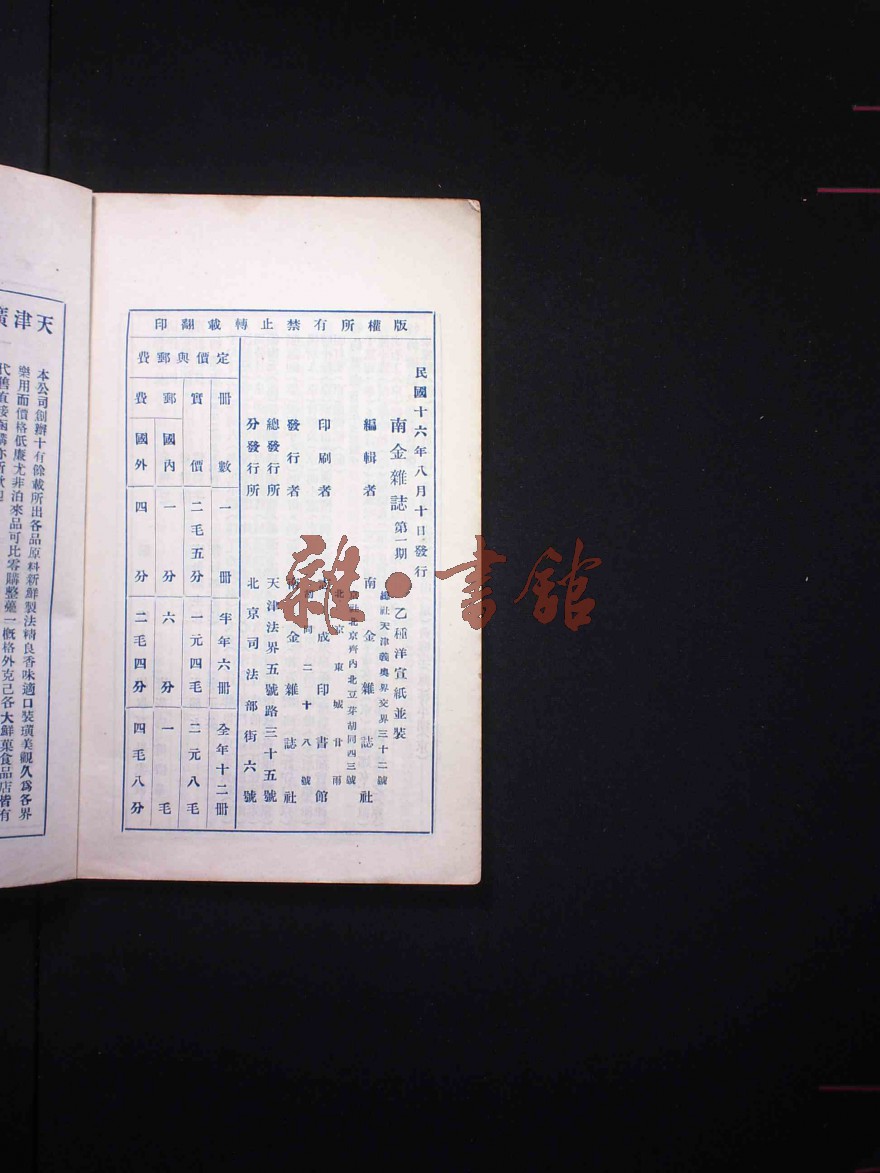 版權所有禁止轉載翻印
民國十六年八月十日發行
南金雜誌 第一期 乙種洋宣紙並裝
總社天津義奧界交界三十二號
編輯者 南金雜誌社
社北京齊內北豆芽胡同四三號
印刷者 成印書館
北京東城甘雨
胡同二十八號
發行者 南金雜誌社
總發行所 天津法界五號路三十五號
分發行所 北京司法部街六號
定價與郵費
冊數 一冊 半年六冊 全年十二冊
實價 二毛五分 一元四毛 二元八毛
郵費 國內 一分 六分 一毛
國外 四分 二毛四分 四毛八分
天津廣
本公司創辦十有餘載所出各品原料新鮮製法精良香味適口裝璜美觀久爲各界
樂用而價格低廉尤非泊來品可比零購整躉一概格外克己各大鮮菓食品店皆有
雜·書館